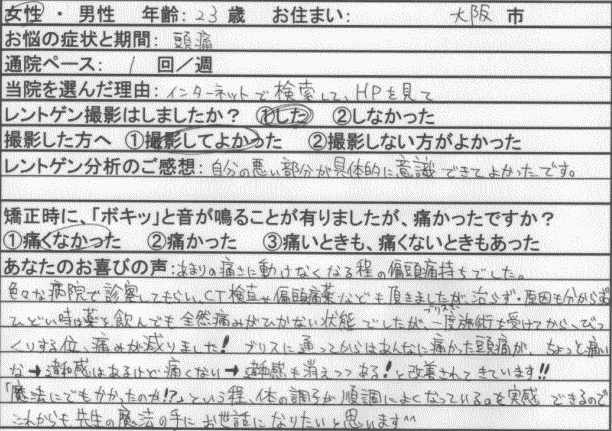 女性 ・ 男性 年齢: 23 歳 お住まい: 大阪 市
お悩の症状と期間: 頭痛
通院ペース: 1 回／週
当院を選んだ理由: インターネットで検索して、HPを見て
レントゲン撮影はしましたか？ ①した ②しなかった
撮影した方へ ①撮影してよかった ②撮影しない方がよかった
レントゲン分析のご感想: 自分の悪い部分が具体的に意識できてよかったです。
矯正時に、「ボキッ」と音が鳴ることが有りましたが、痛かったですか？
①痛くなかった ②痛かった ③痛いときも、痛くないときもあった
あなたのお喜びの声: あまりの痛さに動けなくなる程の偏頭痛持ちでした。
色々な病院で診察してもらい、CT検査や偏頭痛薬なども頂きましたが、治らず・原因も分からず
ひどい時は薬を飲んでも全然痛みがひかない状態でしたが、ブリスで一度施術を受けてから、びっ
くりする位、痛みが減りました！ ブリスに通ってからはあんなに痛かった頭痛が、ちょっと痛い
な→違和感はあるけど痛くない→違和感も消えつつある！と改善されてきています!!
「魔法にでもかかったのか!?」という程、体の調子が順調によくなっているのを実感できるので
これからも先生の魔法の手にお世話になりたいと思います^^